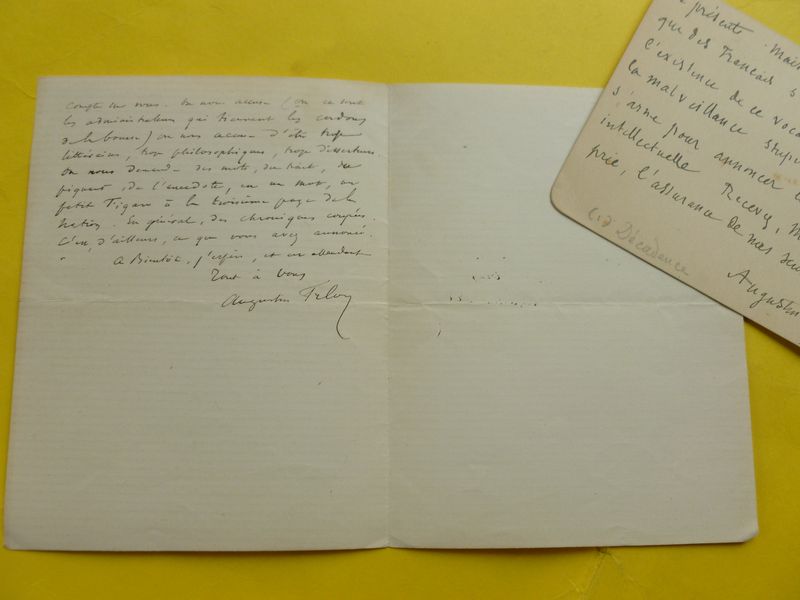 compte sur nous. On nous accuse (on ce sont
les administrateurs qui tiennent les cordons
de la bourse) on nous accuse d'être trop
littéraires, trop philosophiques, trop
On nous demande des mots, du trait, du
piquant, de l'anecdote, en un mot, un
petit Figaro à la troisième page de la
Nation. En général, des chroniques coupées.
C'est, d'ailleurs, ce que vous avez annoncé.
A Bientôt, j'espère, et en attendant
Tout à vous
Augustin Filon
présente
que des Français s
l'existence de ce
la malveillance
s'arme pour annoncer
intellectuelle Recevez, M
prie, l'assurance de mes
Augustin
Décadence